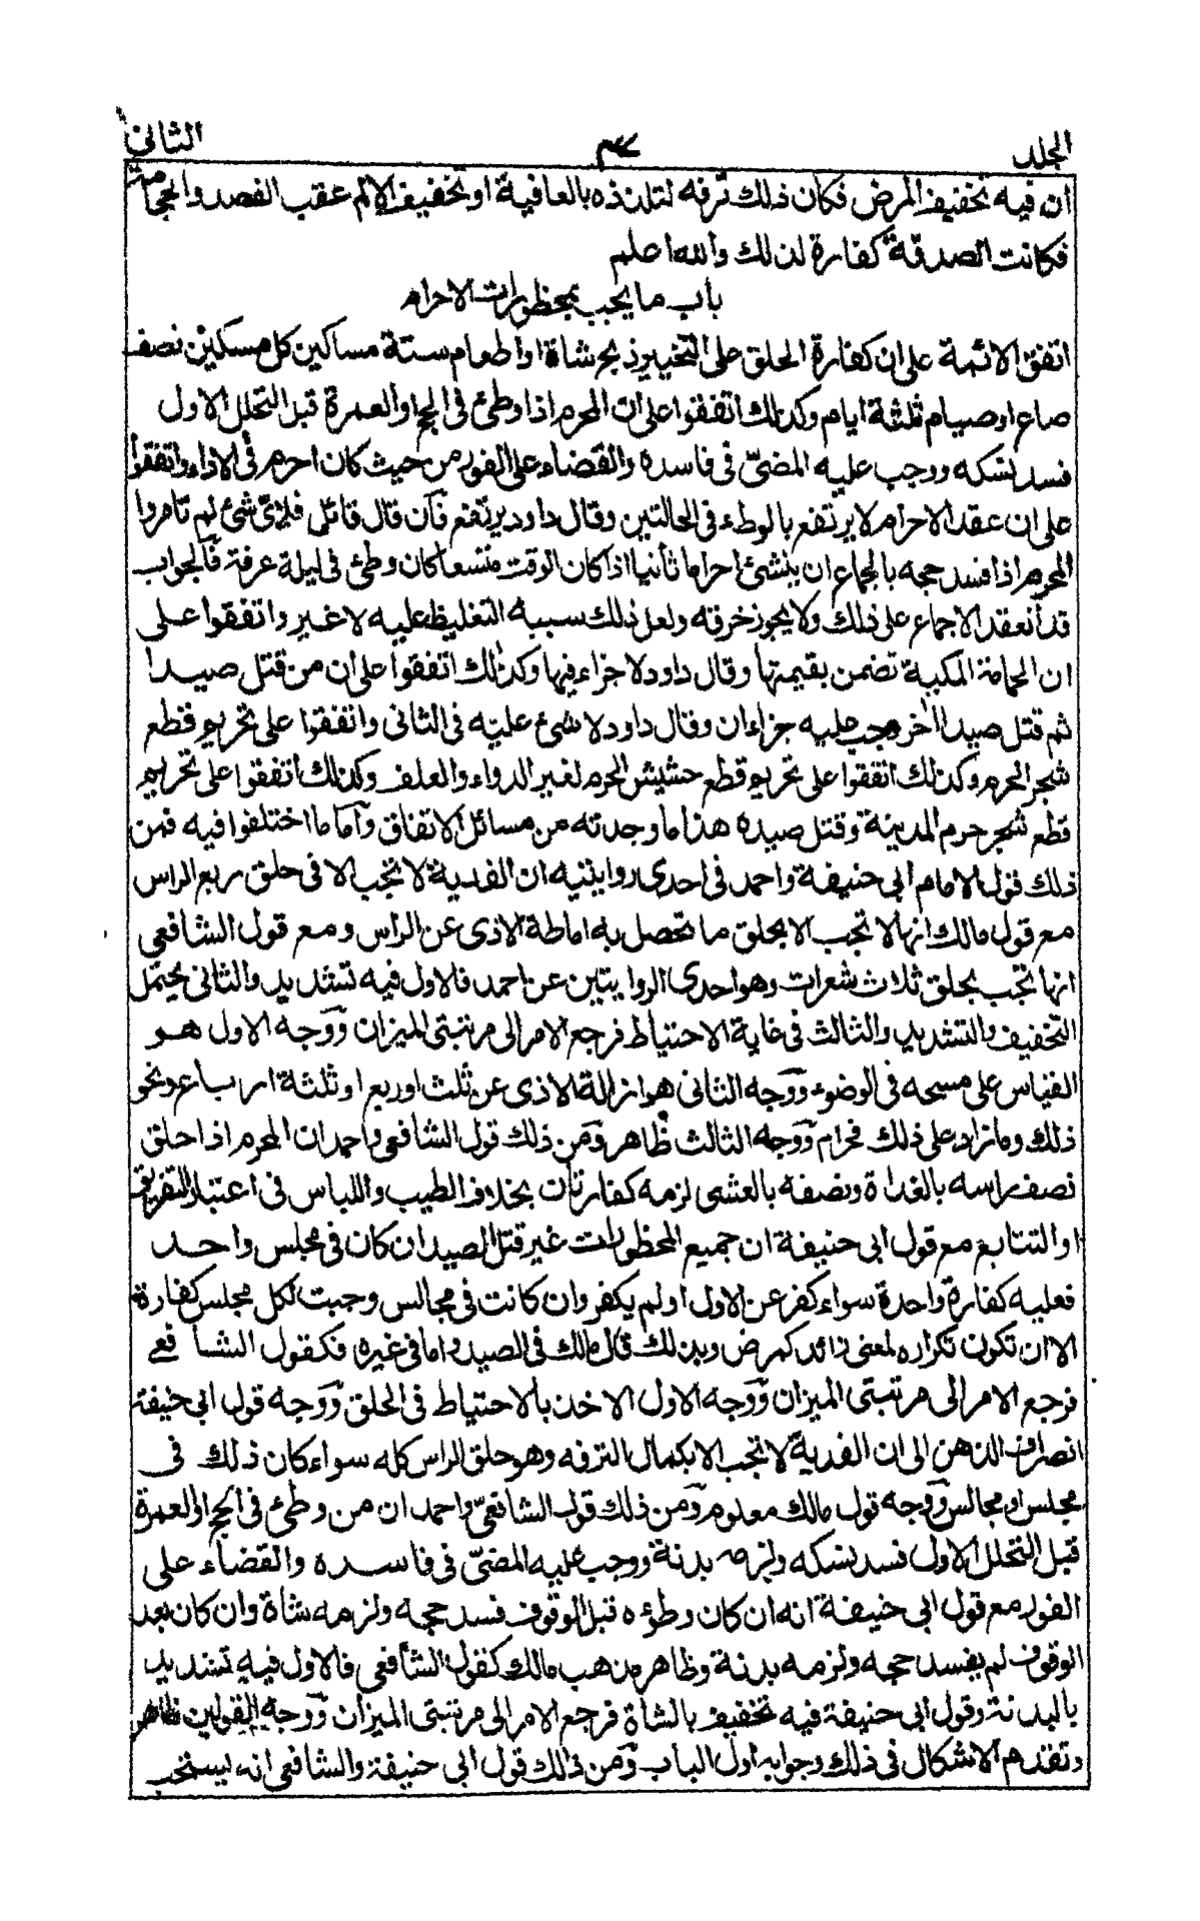 الجلد ٤٣ الثاني
ان فيه تخفيف المرض فكان ذلك ترفه لتلذذه بالعافية او تخفيف الالم عقب الفصد والحجامة
فكانت الصدقة كفارة لذلك والله اعلم
باب ما يجب بمحظورات الاحرام
اتفق الائمة على ان كفارة الحلق على التخيير ذبح شاة او اطعام ستة مساكين كل مسكين نصف
صاع او صيام ثلثة ايام وكذلك اتفقوا على ان المحرم اذا وطئ في الحج او العمرة قبل التحلل الاول
فسد نسكه ووجب عليه المضيّ في فاسده والقضاء على الفور من حيث كان احرم في الاداء واتفقوا
على ان عقد الاحرام لا يرتفع بالوطء في الحالتين وقال داود يرتفع فان قال قائل فلايّ شئ لم تامروا
المحرم اذا فسد حجه بالجماع ان ينشئ احراما ثانيا اذا كان الوقت متسعا كان وطئ في ليلة عرفة فالجواب
قد انعقد الاجماع على ذلك ولا يجوز خرقه ولعل ذلك سببه التغليظ عليه لا غير واتفقوا على
ان الحمامة المكية تضمن بقيمتها وقال داود لا جزاء فيها وكذلك اتفقوا على ان من قتل صيدا
ثم قتل صيدا اخر وجب عليه جزاءان وقال داود لا شئ عليه في الثاني واتفقوا على تحريم قطع
شجر الحرم وكذلك اتفقوا على تحريم قطع حشيش الحرم لغير الدواء والعلف وكذلك اتفقوا على تحريم
قطع شجر حرم المدينة وقتل صيده هذا ما وجدته من مسائل الاتفاق واما ما اختلفوا فيه فمن
ذلك قول الامام ابي حنيفة واحمد في احدى روايتيه ان الفدية لا تجب الا في حلق ربع الراس
مع قول مالك انها لا تجب الا بحلق ما تحصل به اماطة الاذى عن الراس ومع قول الشافعي
انها تجب بحلق ثلاث شعرات وهو احدى الروايتين عن احمد فالاول فيه تشديد والثاني يحتمل
التخفيف والتشديد والثالث في غاية الاحتياط فرجع الامر الى مرتبتي الميزان ووجه الاول هو
القياس على مسحه في الوضوء ووجه الثاني هو ازالة الاذى عن ثلث او ربع او ثلثة ارباع ونحو
ذلك وما زاد على ذلك فحرام ووجه الثالث ظاهر ومن ذلك قول الشافعي واحمد ان المحرم اذا حلق
نصف راسه بالغداة ونصفه بالعشى لزمه كفارتان بخلاف الطيب واللباس في اعتبار التفريق
او التتابع مع قول ابي حنيفة ان جميع المحظورات غير قتل الصيد ان كان في مجلس واحد
فعليه كفارة واحدة سواء كفر عن الاول او لم يكفر وان كانت في مجالس وجبت لكل مجلس كفارة
الا ان تكون تكراره لمعنى زائد كمرض وبذلك قال مالك في الصيد واما في غيره فكقول الشافعي
فرجع الامر الى مرتبتي الميزان ووجه الاول الاخذ بالاحتياط في الحلق ووجه قول ابي حنيفة
انصراف الذهن الى ان الفدية لا تجب الا بكمال الترفه وهو حلق الراس كله سواء كان ذلك في
مجلس او مجالس ووجه قول مالك معلوم ومن ذلك قول الشافعيّ واحمد ان من وطئ في الحج او العمرة
قبل التحلل الاول فسد نسكه ولزمه بدنة ووجب عليه المضيّ في فاسده والقضاء على
الفور مع قول ابي حنيفة انه ان كان وطؤه قبل الوقوف فسد حجه ولزمه شاة وان كان بعد
الوقوف لم يفسد حجه ولزمه بدنة وظاهر مذهب مالك كقول الشافعي فالاول فيه تشديد
بالبدنة وقول ابي حنيفة فيه تخفيف بالشاة فرجع الامر الى مرتبتي الميزان ووجه القولين ظاهر
وتقدم الاشكال في ذلك وجوابه اول الباب ومن ذلك قول ابي حنيفة والشافعي انه يستحب